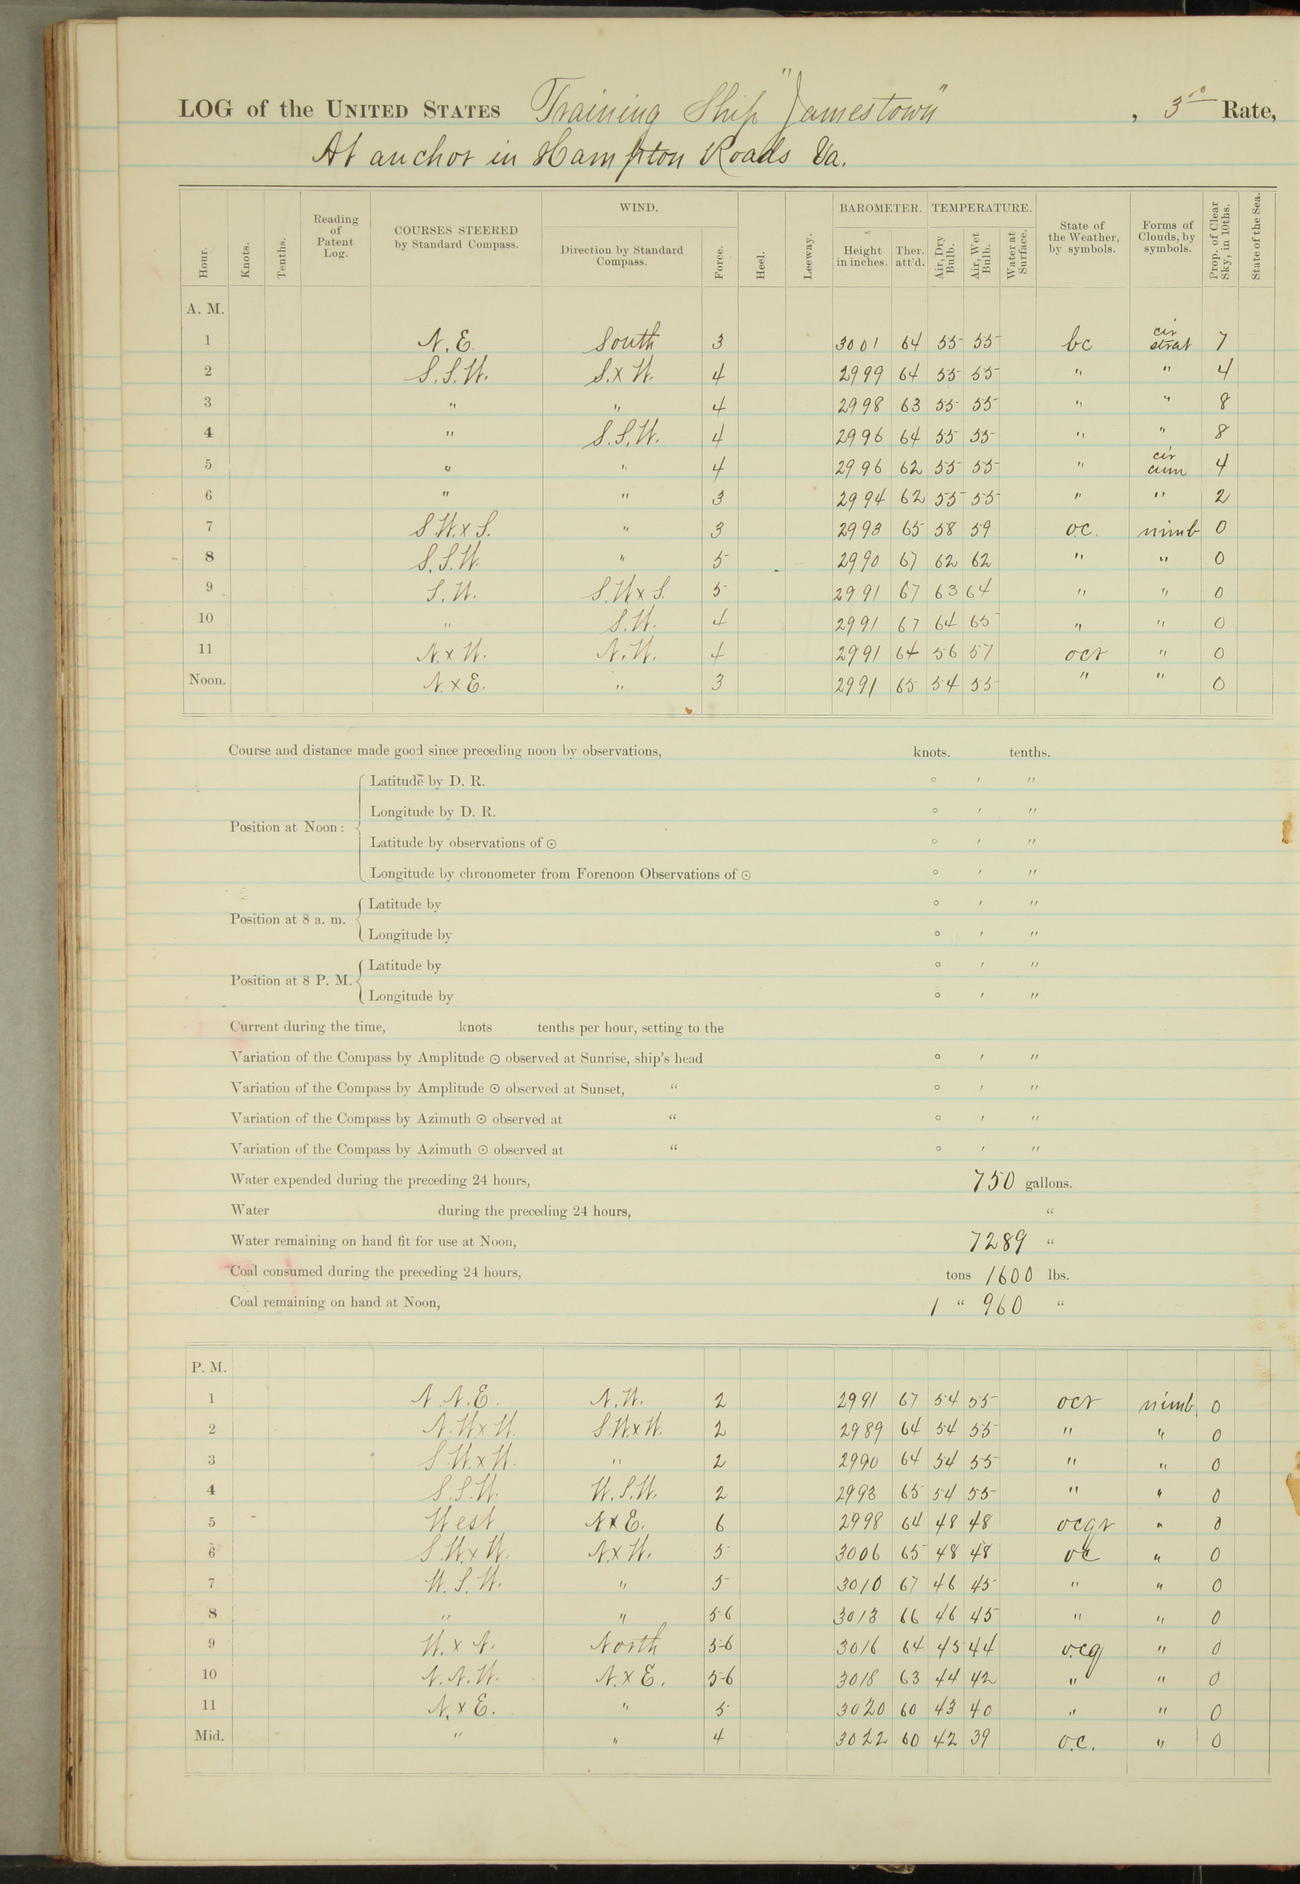 LOG of the UNITED STATES Training Ship "Jamestown", 3rd Rate,
At anchor in Hampton Roads Va.
Hour. Knots. Tenths. Reading of Patent Log. COURSES STEERED by Standard Compass. WIND. Direction by Standard Compass. Force. Heel. Leeway. BAROMETER. Height in inches. Ther. att'd. TEMPERATURE. Air, Dry Bulb. Air, Wet Bulb. Water at Surface. State of the Weather, by symbols. Forms of Clouds, by symbols. Prop. of Clear Sky, in 10ths. State of the Sea.
A. M.
1 N.E. South 3 3001 64 55 55 bc cir strat 7
2 S.S.W. S.xW. 4 2999 64 55 55 " " 4
3 " " 4 2998 63 55 55 " " 8
4 " S.S.W. 4 2996 64 55 55 " " 8
5 " " 4 2996 62 55 55 " cir cum 4
6 " " 3 2994 62 55 55 " " 2
7 S.W.xS. " 3 2993 65 58 59 o.c. nimb 0
8 S.S.W. " 5 2990 67 62 62 " " 0
9 S.W. S.W.xS. 5 2991 67 63 64 " " 0
10 " S.W. 4 2991 67 64 65 " " 0
11 N.xW. N.W. 4 2991 64 56 57 ocr " 0
Noon. N.xE. " 3 2991 65 54 55 " " 0
Course and distance made good since preceding noon by observations, knots. tenths.
Position at Noon: Latitude by D. R. ° ′ ″
Longitude by D. R. ° ′ ″
Latitude by observations of ⊙ ° ′ ″
Longitude by chronometer from Forenoon Observations of ⊙ ° ′ ″
Position at 8 a. m. Latitude by ° ′ ″
Longitude by ° ′ ″
Position at 8 P. M. Latitude by ° ′ ″
Longitude by ° ′ ″
Current during the time, knots tenths per hour, setting to the
Variation of the Compass by Amplitude ⊙ observed at Sunrise, ship's head ° ′ ″
Variation of the Compass by Amplitude ⊙ observed at Sunset, “ ° ′ ″
Variation of the Compass by Azimuth ⊙ observed at “ ° ′ ″
Variation of the Compass by Azimuth ⊙ observed at “ ° ′ ″
Water expended during the preceding 24 hours, 750 gallons.
Water during the preceding 24 hours, “
Water remaining on hand fit for use at Noon, 7289 “
Coal consumed during the preceding 24 hours, tons 1600 lbs.
Coal remaining on hand at Noon, 1 “ 960 “
P. M.
1 N.N.E. N.W. 2 2991 67 54 55 ocr nimb 0
2 N.WxW. S.WxW. 2 2989 64 54 55 " " 0
3 S.W.xW. " 2 2990 64 54 55 " " 0
4 S.S.W. W.S.W. 2 2993 65 54 55 " " 0
5 West NxE. 6 2998 64 48 48 ocqr " 0
6 S.WxW. N.xW. 5 3006 65 48 48 oc " 0
7 W.S.W. " 5 3010 67 46 45 " " 0
8 " " 5-6 3013 66 46 45 " " 0
9 W.xN. North 5-6 3016 64 45 44 o.c.q " 0
10 N.N.W. N.xE. 5-6 3018 63 44 42 " " 0
11 N.xE. " 5 3020 60 43 40 " " 0
Mid. " " 4 3022 60 42 39 o.c. " 0